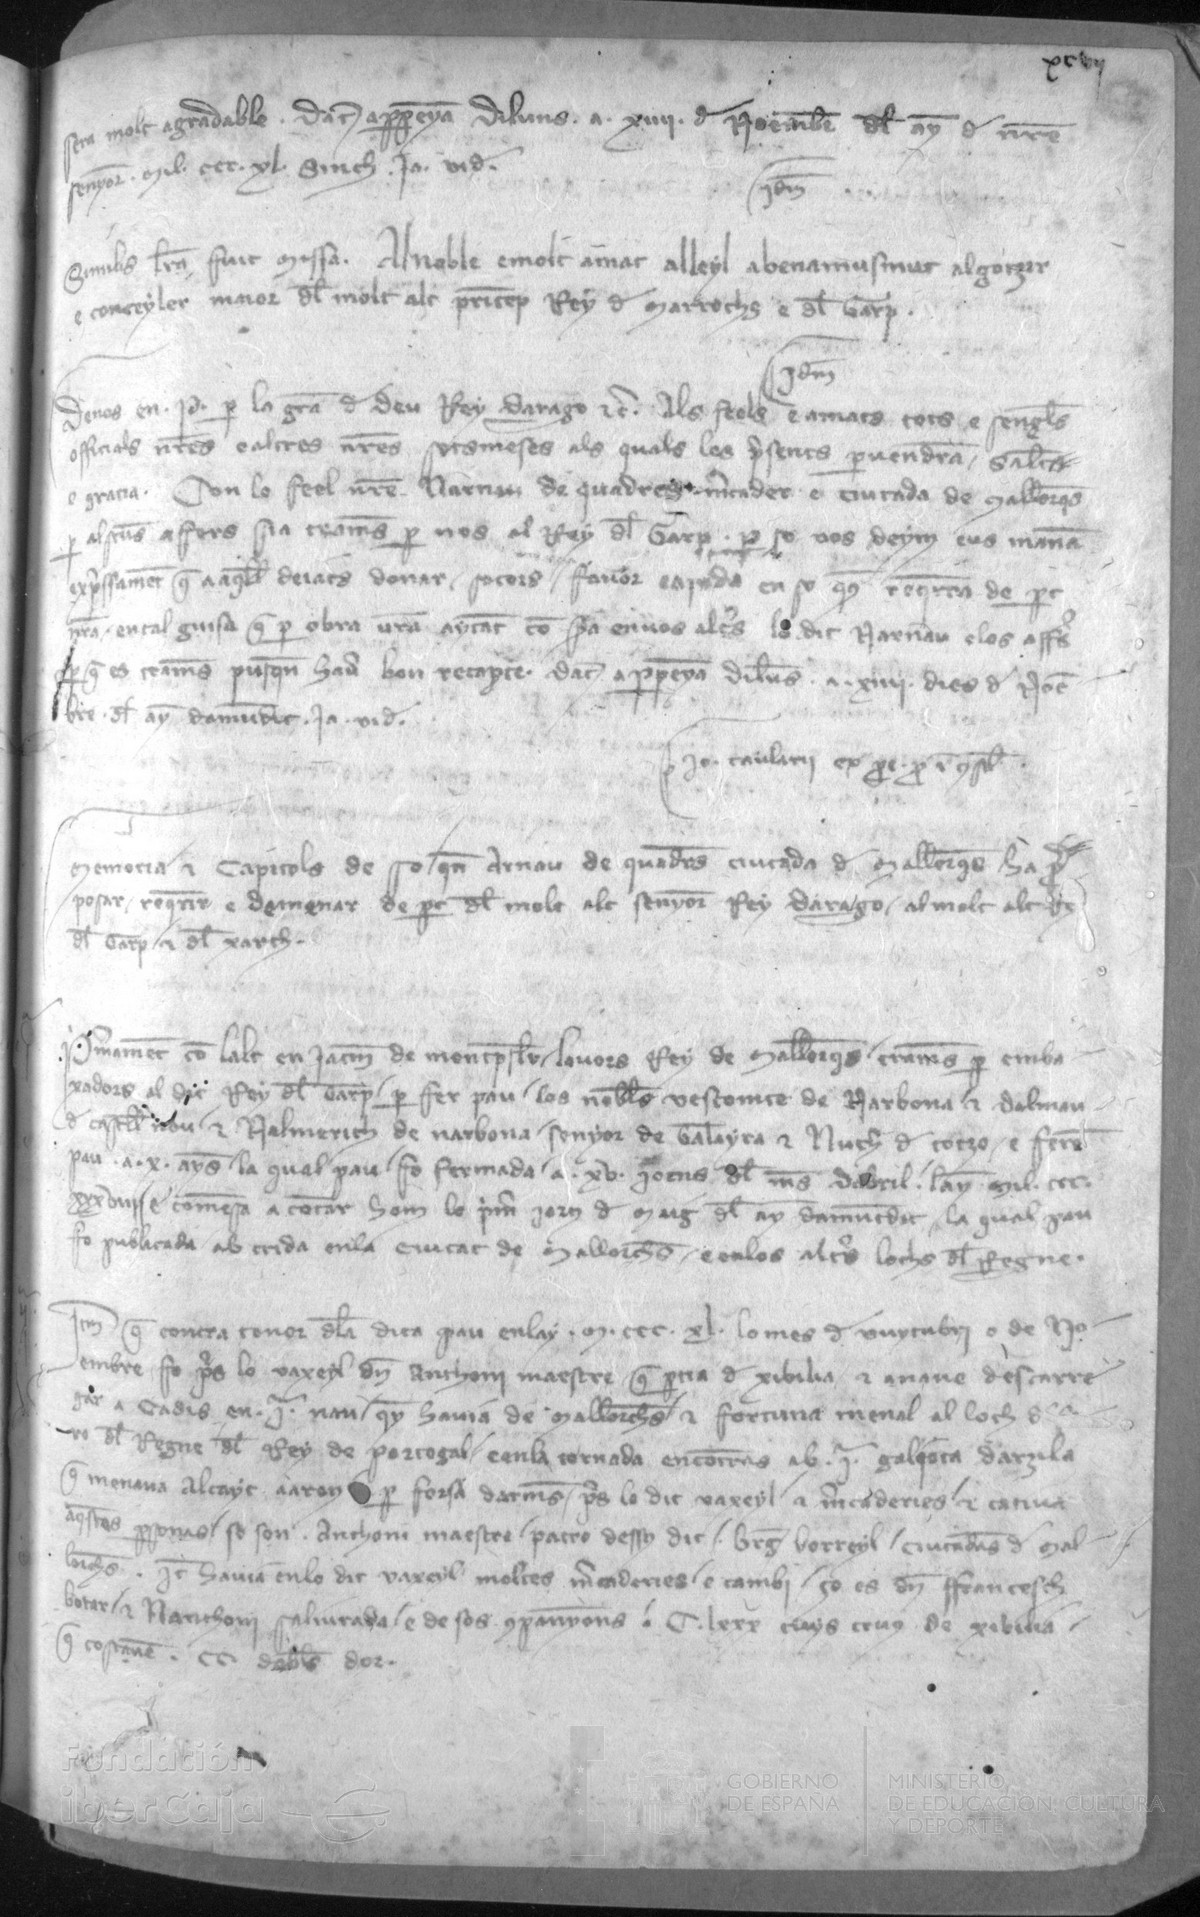 xcvii
sera molt agradable. Dat a ppeya diluns. a. xiiii. d Noembr dl ay d nre
senyor. mil. ccc. xl. Sinch. Ja. vid.
Idm
Similis lra fuit missa. Al noble e molt amat alleyl abenamusmut algotzir
e conceyler maior dl molt alt princep Rey d Marrochs e dl Garp.
Idm
Denos en. P. p la gra d deu Rey darago etc. Als feels e amats tots e sengls
officials nres e altres nres sotsmeses als quals les psents pvendra, Salut
e gracia. Con lo feel nre Narnau de quadres mcader e ciutada de Mallorqs
p alscuns afers sia trams p nos al Rey dl Garp. p so vos deym eus mana
expssament q aaqll deiats donar, socors, favor eajuda en so qus reqrra de pt
nra, en tal guisa q p obra vra aytat co sia en vos altrs lo dit Narnau e los affrs
p q es trams pusqn haver bon recapte. Dat a ppeya diluns. a. xiiii. dies d Noe
bre. dl ay damudit. Ja. vid.
Memoria e Capitols de so qn Arnau de quadrs ciutada d Mallorqs ha p
posar, reqrir e demenar de pt dl molt alt senyor Rey darago, al molt alt Rey
dl Garp e dl xarch.
Primament co lalt en Jacm de montpslr, lavors Rey de Mallorqs, trams p emba
xadors al dit Rey dl Garp, p fer pau, los nobles vescomte de Narbona e dalmau
d castell nou e Nalmerich de narbona senyor de e Nuch d totzo, e fere
pau. a. x. ays, la qual pau fo fermada, a. xv. iorns dl ms dabril. lay mil. ccc.
xxxviiii e comesa a cotar hom lo pm iorn d Maig dl ay damutdit, la qual pau
fo publicada ab crida en la Ciutat de Mallorchs, e en los altrs lochs dl Regne.
Itm q contra tenor dla dita pau enlay. M. ccc. xl. lo mes d vuytubri o de No
embre, fo prs lo vaxeyl dn Anthoni maestre q ptia d xibilia e anave descarre
gar a Cadis en. I. nau, qy havia de Mallorchs, e fortuna menal al loch
ro dl Regne dl Rey de portogal, e en la tornada encotras ab. I. galiota darzila
q menava Alcayt aaron p forsa darms, prs lo dit vaxeyl e mcaderies, e cativa
aqstes psonas, so son. Anthoni maestre, patro desso dit, brg borreyl, ciutadas d Mal
lorchs. It havia en lo dit vaxeyl moltes mcaderies, e cambi, so es dn ffrancesch
botar, e Nanthoni e de sos companyons. C. lxxx de xibilia
q costave. CC. dobls dor.
Fundación
iberCaja
GOBIERNO
DE ESPAÑA
MINISTERIO
DE EDUCACIÓN, CULTURA
Y DEPORTE